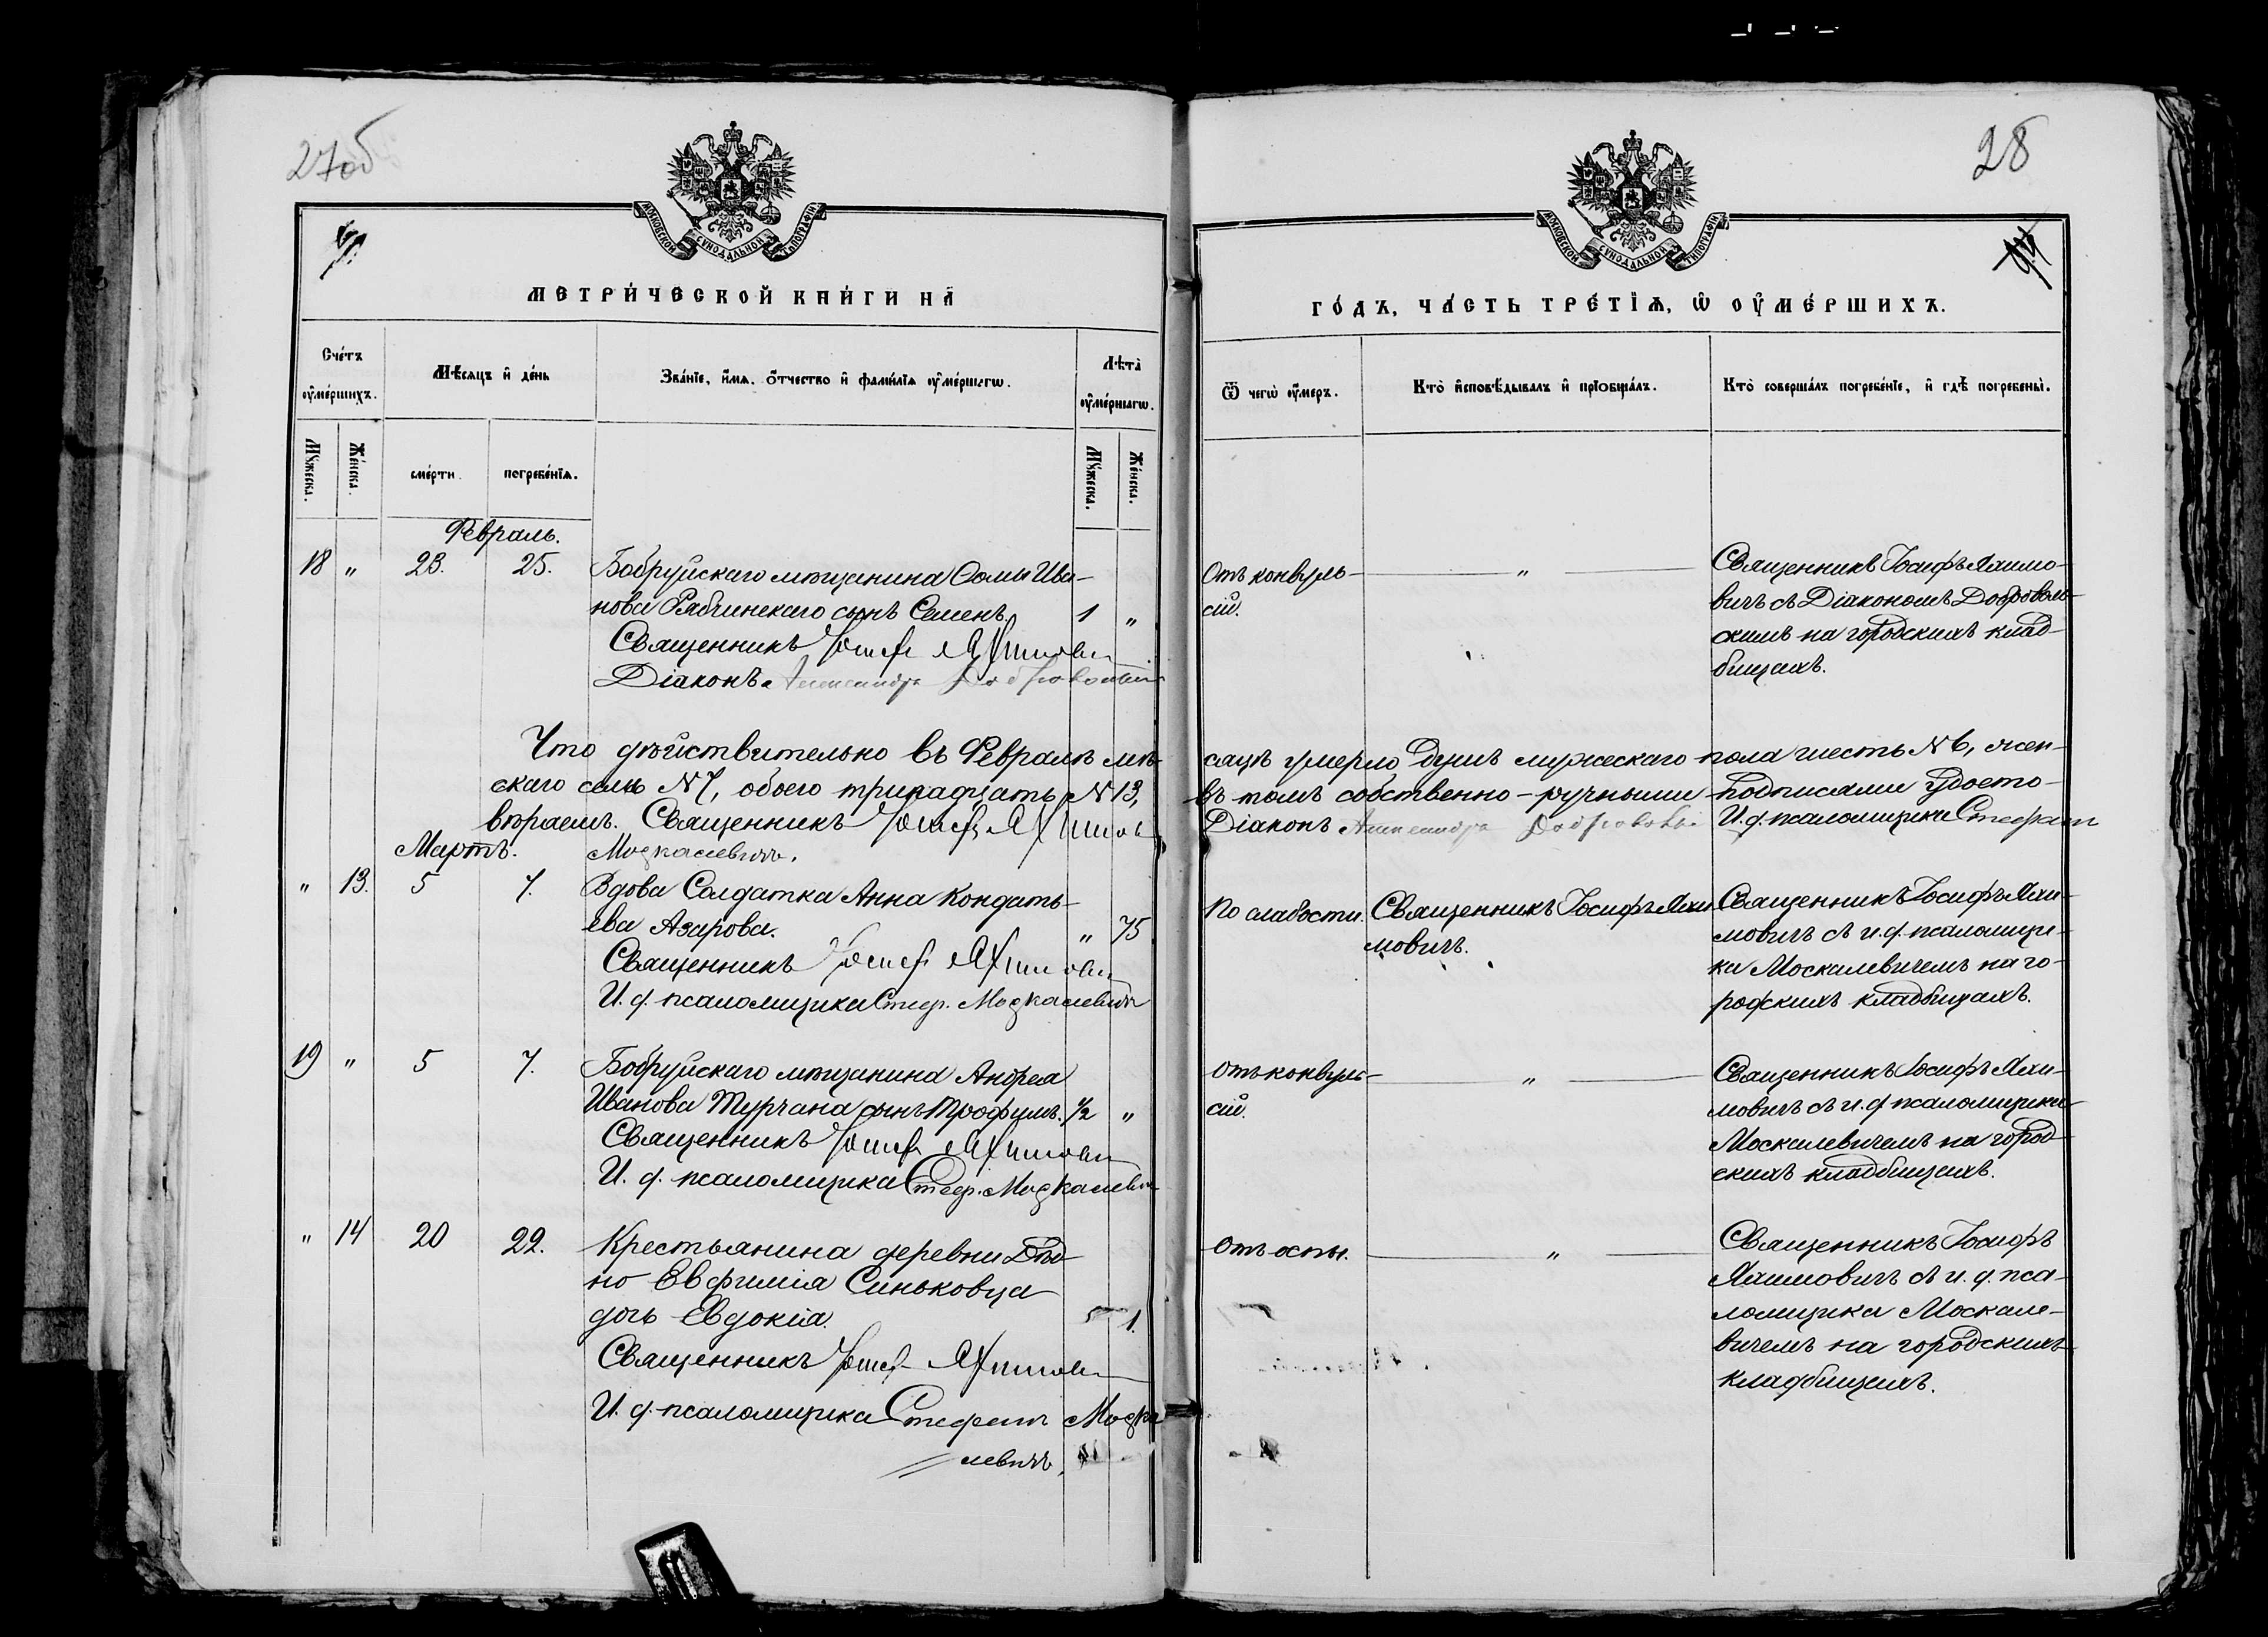 27об
28
МОСКОВСКОЙ СѴНОДАЛЬНОЙ ТИПОГРАФІИ
МОСКОВСКОЙ СѴНОДАЛЬНОЙ ТИПОГРАФІИ
МЕТРИ́ЧЕСКОЙ КНИ́ГИ НА̀
ГО́ДЪ, ЧА́СТЬ ТРЕ́ТІѦ, Ѡ҆ ОУ҆МЕ́РШИХЪ.
Сче́тъ оу҆ме́ршихъ.
Мѣ́сяцъ и҆ де́нь
Зва́нїе, и҆́мѧ, ѻ҆́тчество и҆ фами́лїѧ оу҆ме́ршагѡ.
Лѣ́та оу҆ме́ршагѡ.
Ѿ чегѡ̀ оу҆́меръ.
Кто̀ и҆сповѣ́дывалъ и҆ прїобща́лъ.
Кто̀ соверша́лъ погребе́нїе, и҆ гдѣ̀ погребены̀.
Мꙋ́жеска.
Же́нска.
сме́рти.
погребе́нїѧ.
Мꙋ́жеска.
Же́нска.
Февраль.
18 " 23. 25. Бобруйскаго мѣщанина Ѳомы Ива-
нова Рябчинскаго сынъ Семенъ. 1 "
Священникъ Іосифъ Яхимович
Діаконъ Александръ Добровольскій
Отъ конвуль-
сій.
"
Священникъ Іосифъ Яхимо-
вичъ съ Діакономъ Доброволь-
скимъ на городскихъ клад-
бищахъ.
Что дѣйствительно въ Февралѣ мѣ-
сяцѣ умерло душъ мужескаго пола шесть N 6, жен-
скаго семь N 7, обоего тринадцать N 13,
въ томъ собственно-ручными подписями удосто-
вѣряемъ. Священникъ Іосифъ Яхимович
Діаконъ Александръ Добровольскій И. д. псаломщика Стефанъ
Москалевичъ.
Мартъ.
" 13. 5 7. Вдова Солдатка Анна Кондать-
ева Азарова. " 75
Священникъ Іосифъ Яхимович
И. д. псаломщика Стеф. Москалевичъ
По слабости.
Священникъ Іосифъ Яхи-
мовичъ.
Священникъ Іосифъ Яхи-
мовичъ съ и. д. псаломщи-
ка Москалевичемъ на го-
родскихъ кладбищахъ.
19 " 5 7. Бобруйскаго мѣщанина Андрея
Иванова Турчана сынъ Трофимъ. 1/2 "
Священникъ Іосифъ Яхимович
И. д. псаломщика Стеф. Москалевичъ
Отъ конвуль-
сій.
"
Священникъ Іосифъ Яхи-
мовичъ съ и. д. псаломщика
Москалевичемъ на город-
скихъ кладбищахъ.
" 14 20 22. Крестьянина деревни
но Евфимія Синьковца
дочь Евдокія. 1.
Священникъ Іосифъ Яхимович
И. д. псаломщика Стефанъ Моска-
левичъ
Отъ оспы.
"
Священникъ Іосифъ
Яхимовичъ съ и. д. пса-
ломщика Москале-
вичемъ на городскихъ
кладбищахъ.